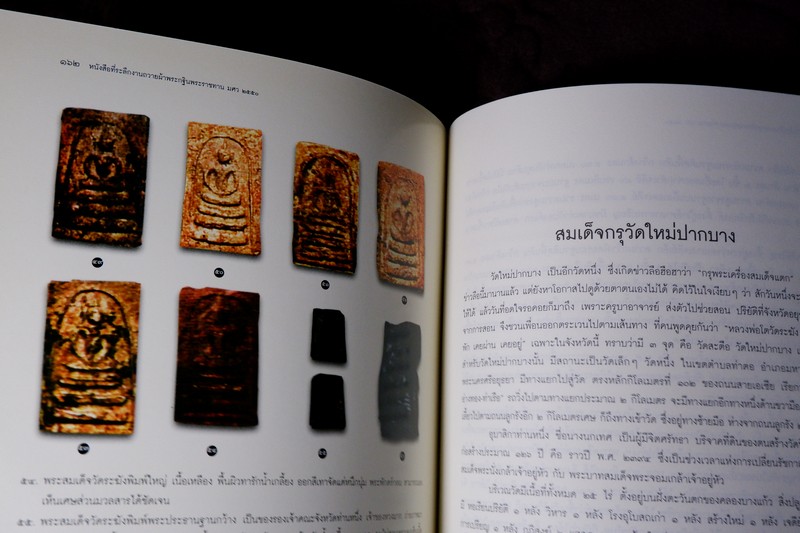 ๑๖๒ หนังสือที่ระลึกงานถวายผ้าพระกฐินพระราชทาน มศว ๒๕๕๐
๔๙
๕๐
๕๓
๕๔. พระสมเด็จวัดระฆังพิมพ์ใหญ่ เนื้อเหลือง พื้นผิวทารักน้ำเกลี้ยง ออกสีเทาจัดแต่หนึกนุ่ม
เห็นเศษส่วนมวลสารได้ชัดเจน
๕๕. พระสมเด็จวัดระฆังพิมพ์พระประธานฐานกว้าง เป็นของรองเจ้าคณะจังหวัดท่านหนึ่ง
สมเด็จกรุวัดใหม่ปากบาง
วัดใหม่ปากบาง เป็นอีกวัดหนึ่ง ซึ่งเกิดข่าวลือฮือฮาว่า "กรุพระเครื่องสมเด็จแตก"
ข่าวลือนี้มานานแล้ว แต่ยังหาโอกาสไปดูด้วยตาตนเองไม่ได้ คิดไว้ในใจเงียบๆ ว่า สักวันหนึ่งจะ
ให้ได้ แล้ววันที่อดใจรอคอยก็มาถึง เพราะครูบาอาจารย์ ส่งตัวไปช่วยสอน ปริยัติที่จังหวัด
จากการสอน จึงชวนเพื่อนออกตระเวนไปตามเส้นทาง ที่คนพูดคุยกันว่า "หลวงพ่อโตวัดระฆัง
พัก เคยผ่าน เคยอยู่" เฉพาะในจังหวัดนี้ ทราบว่ามี ๓ จุด คือ วัดสะตือ วัดใหม่ปากบาง
สำหรับวัดใหม่ปากบางนั้น มีสถานะเป็นวัดเล็กๆ วัดหนึ่ง ในเขตตำบลท่าตอ อำเภอมหา
พระนครศรีอยุธยา มีทางแยกไปสู่วัด ตรงหลักกิโลเมตรที่ ๑๐๒ ของถนนสายเอเซีย เรียก
อ่างทอง-ท่าเรือ" รถวิ่งไปตามทางแยกประมาณ ๒ กิโลเมตร จะมีทางแยกอีกทางหนึ่งด้านขวามือ
เลี้ยวไปตามถนนลูกรังอีก ๒ กิโลเมตรเศษ ก็ถึงทางเข้าวัด ซึ่งอยู่ทางซ้ายมือ ห่างจากถนนลูกรัง
อุบาสิกาท่านหนึ่ง ชื่อนางนกเทศ เป็นผู้มีจิตศรัทธา บริจาคที่ดินของตนสร้างวัด
ก่อสร้างประมาณ ๑๒๖ ปี คือ ราวปี พ.ศ. ๒๓๓๔ ซึ่งเป็นช่วงเวลาแห่งการเปลี่ยนรัชกา
สมเด็จพระนั่งเกล้าเจ้าอยู่หัว กับ พระบาทสมเด็จพระจอมเกล้าเจ้าอยู่หัว
บริเวณวัดมีเนื้อที่ทั้งหมด ๒๕ ไร่ ตั้งอยู่บนฝั่งตะวันตกของคลองบางแก้ว
มี หอเรียนปริยัติ ๑ หลัง วิหาร ๑ หลัง โรงอุโบสถเก่า ๑ หลัง สร้างใหม่ ๑ หลัง